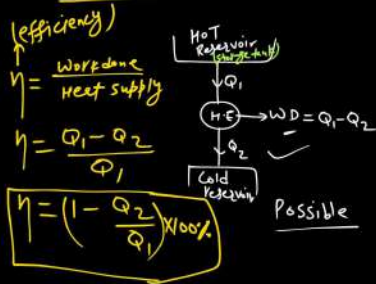 (efficiency)
η = Workdone / Heet supply
η = Q₁ - Q₂ / Q₁
η = (1 - Q₂ / Q₁) X100%
HOT
Reservoir
(storage tank)
Q₁
H.E → WD = Q₁ - Q₂
Q₂
Cold
reservoir
Possible